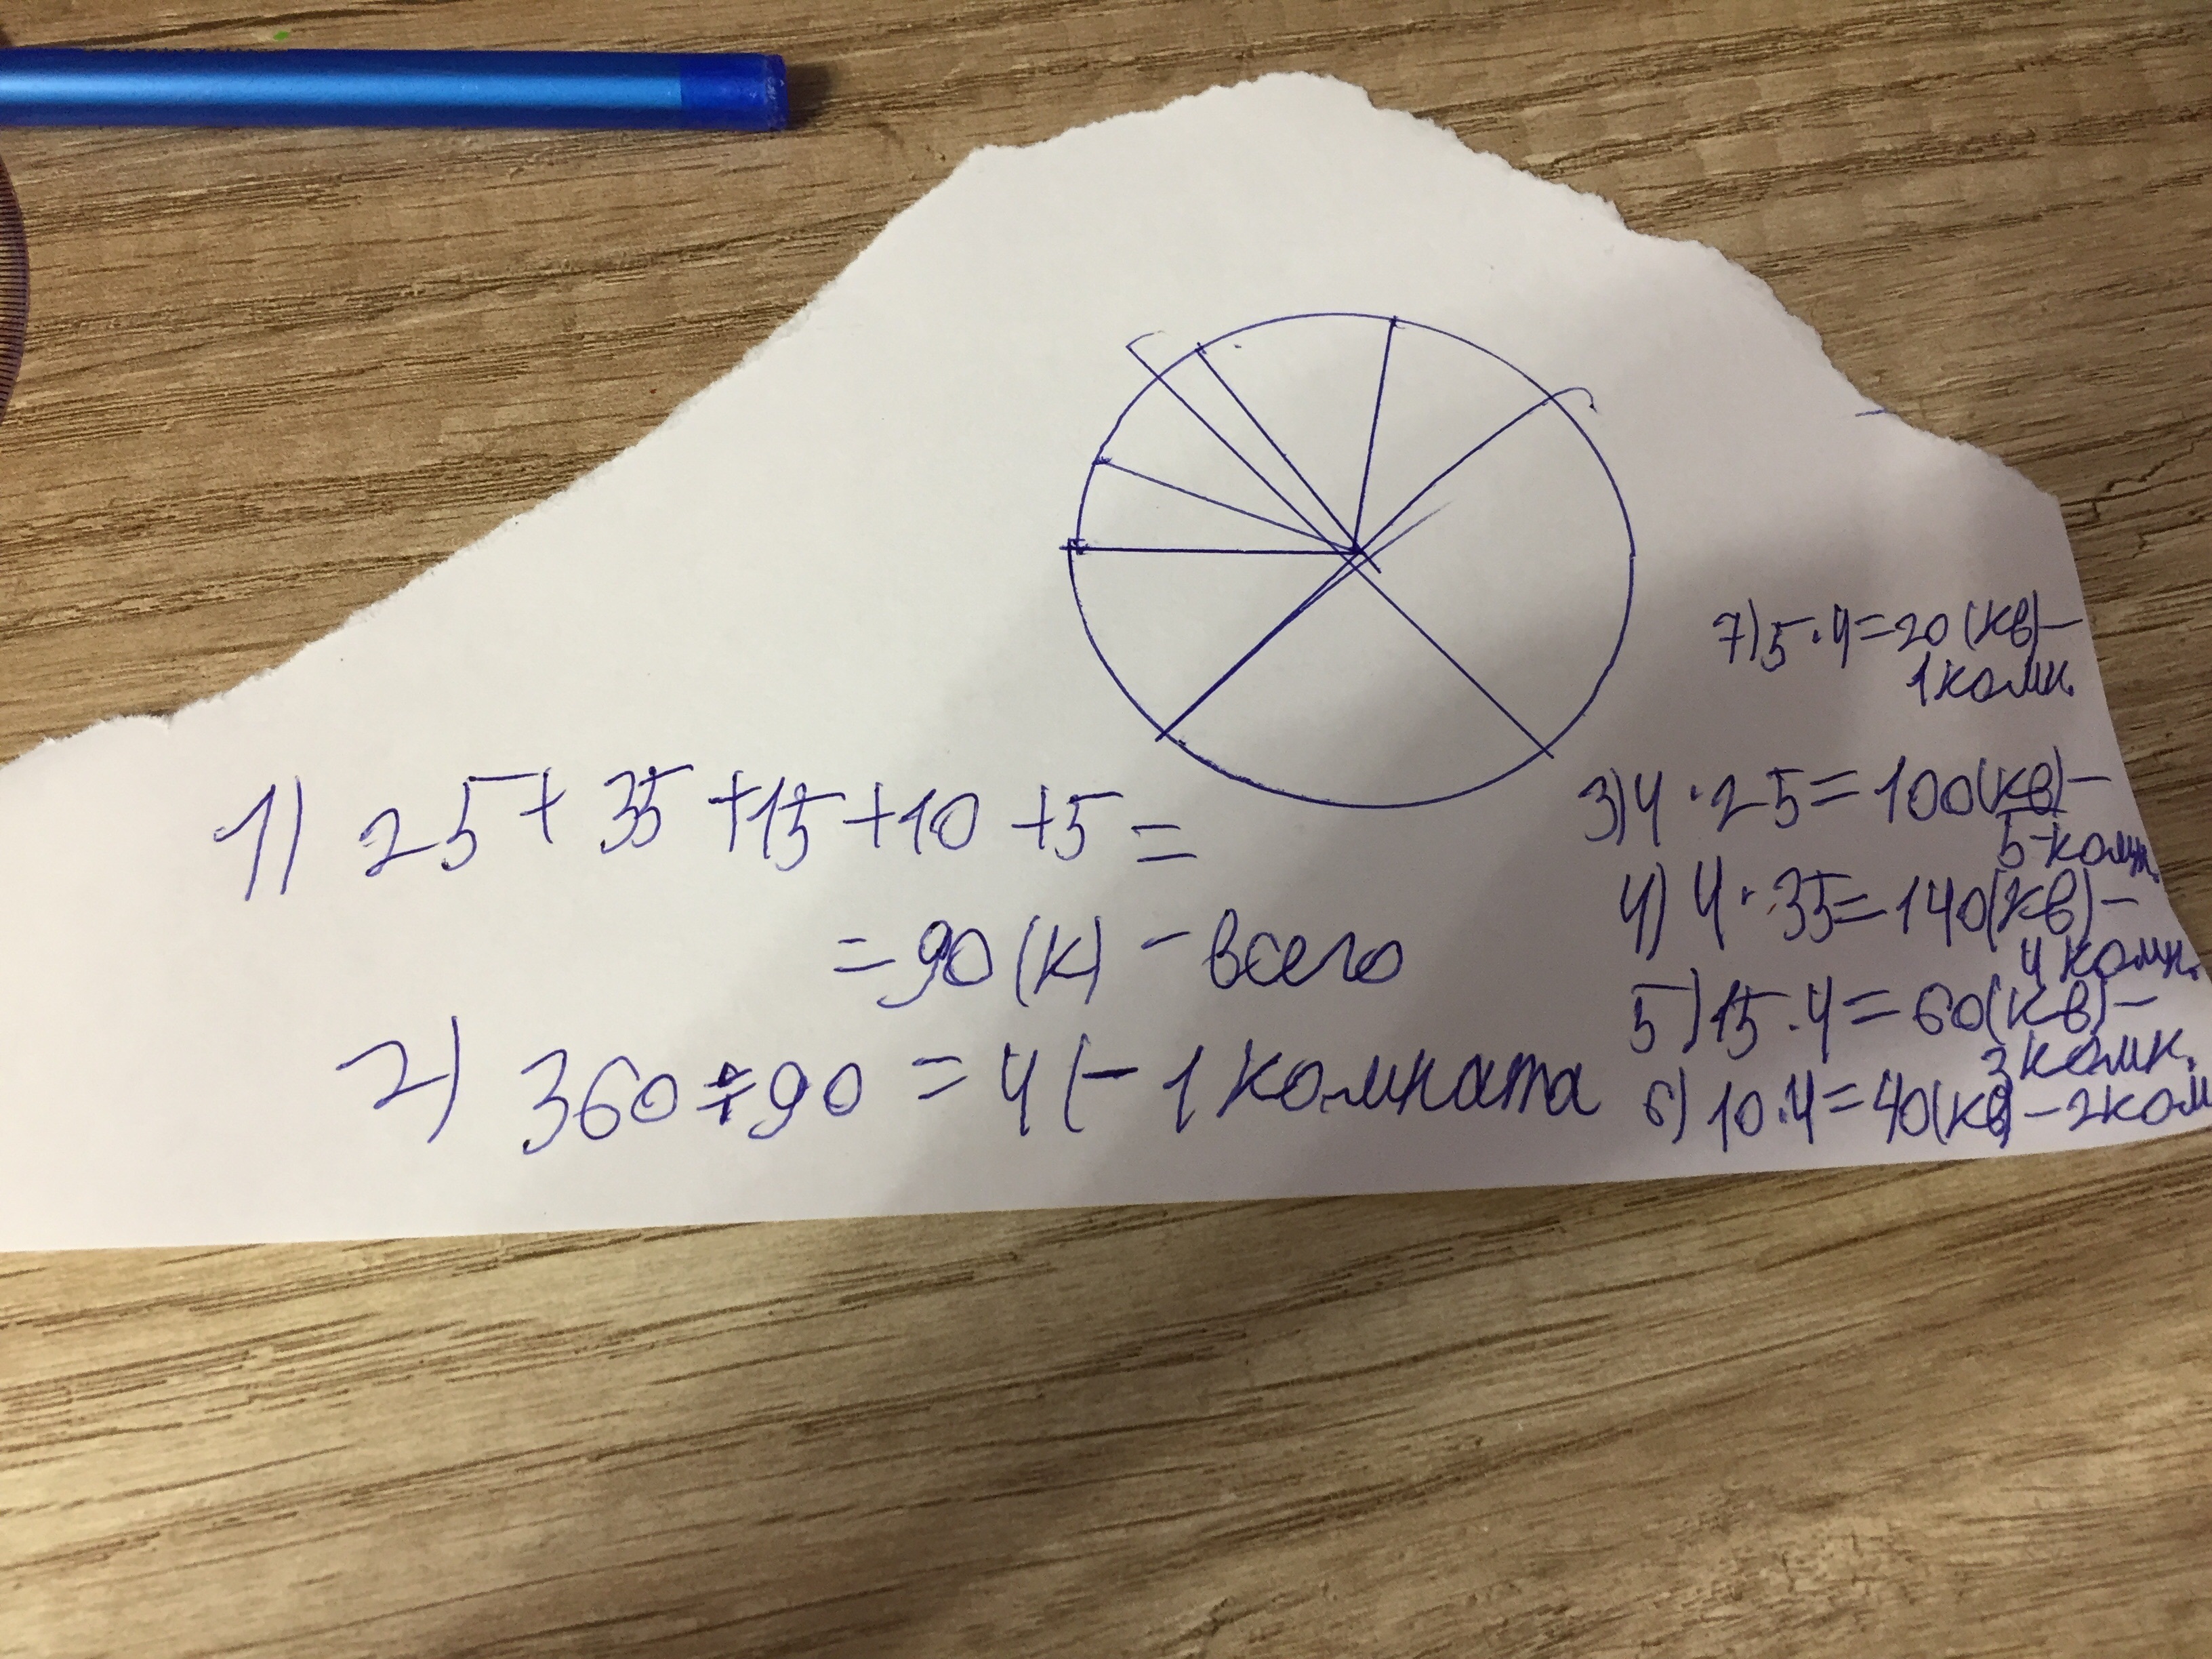 1) 25+ 35 +15 +10 +5 =
= 90 (к) - всего
2) 360 ÷ 90 = 4 (- 1 комната
3) 4 · 25 = 100(кв)-
5-комн.
4) 4 · 35 = 140(кв)-
4 комн.
5) 15 · 4 = 60(кв)-
3 комн.
6) 10 · 4 = 40(кв) - 2 ком
7) 5 · 4 = 20 (кв)-
1 комн.